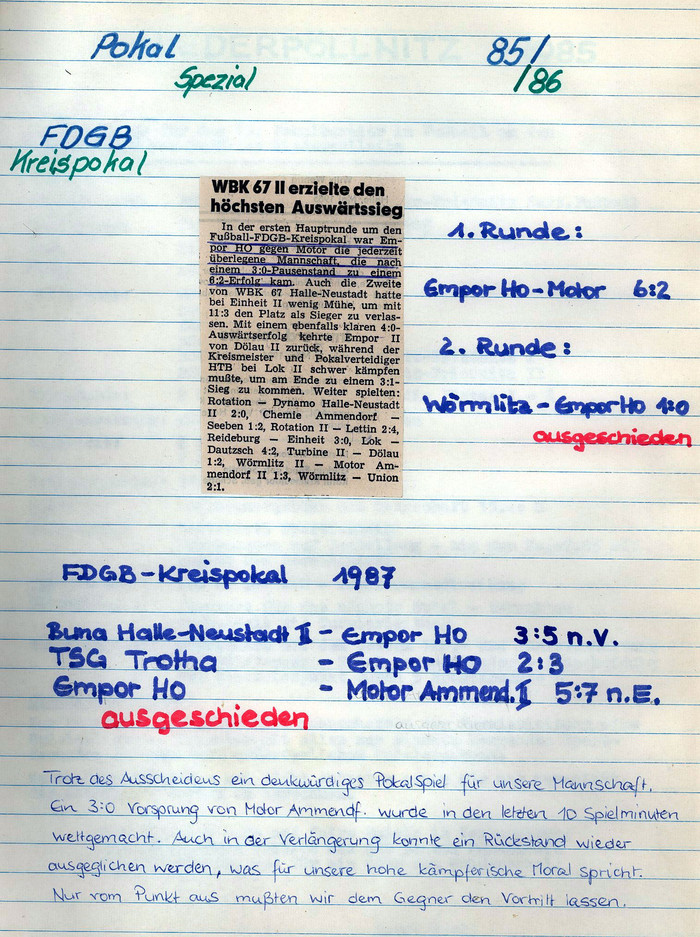 Pokal 85/
Spezial /86
FDGB
Kreispokal
WBK 67 II erzielte den
höchsten Auswärtssieg
In der ersten Hauptrunde um den
Fußball-FDGB-Kreispokal war Em-
por HO gegen Motor die jederzeit
überlegene Mannschaft, die nach
einem 3:0-Pausenstand zu einem
6:2-Erfolg kam. Auch die Zweite
von WBK 67 Halle-Neustadt hatte
bei Einheit II wenig Mühe, um mit
11:3 den Platz als Sieger zu verlas-
sen. Mit einem ebenfalls klaren 4:0-
Auswärtserfolg kehrte Empor II
von Dölau II zurück, während der
Kreismeister und Pokalverteidiger
HTB bei Lok II schwer kämpfen
mußte, um am Ende zu einem 3:1-
Sieg zu kommen. Weiter spielten:
Rotation — Dynamo Halle-Neustadt
II 2:0, Chemie Ammendorf —
Seeben 1:2, Rotation II — Lettin 2:4,
Reideburg — Einheit 3:0, Lok —
Dautzsch 4:2, Turbine II — Dölau
1:2, Wörmlitz II — Motor Am-
mendorf II 1:3, Wörmlitz — Union
2:1.
1. Runde:
Empor HO - Motor 6:2
2. Runde:
Wörmlitz - Empor HO 1:0
ausgeschieden
FDGB-Kreispokal 1987
Buna Halle-Neustadt II - Empor HO 3:5 n.V.
TSG Trotha - Empor HO 2:3
Empor HO - Motor Ammend. II 5:7 n.E.
ausgeschieden
Trotz des Ausscheidens ein denkwürdiges Pokalspiel für unsere Mannschaft.
Ein 3:0 Vorsprung von Motor Ammendf. wurde in den letzten 10 Spielminuten
weltgemacht. Auch in der Verlängerung konnte ein Rückstand wieder
ausgeglichen werden, was für unsere hohe kämpferische Moral spricht.
Nur vom Punkt aus mußten wir dem Gegner den Vortritt lassen.